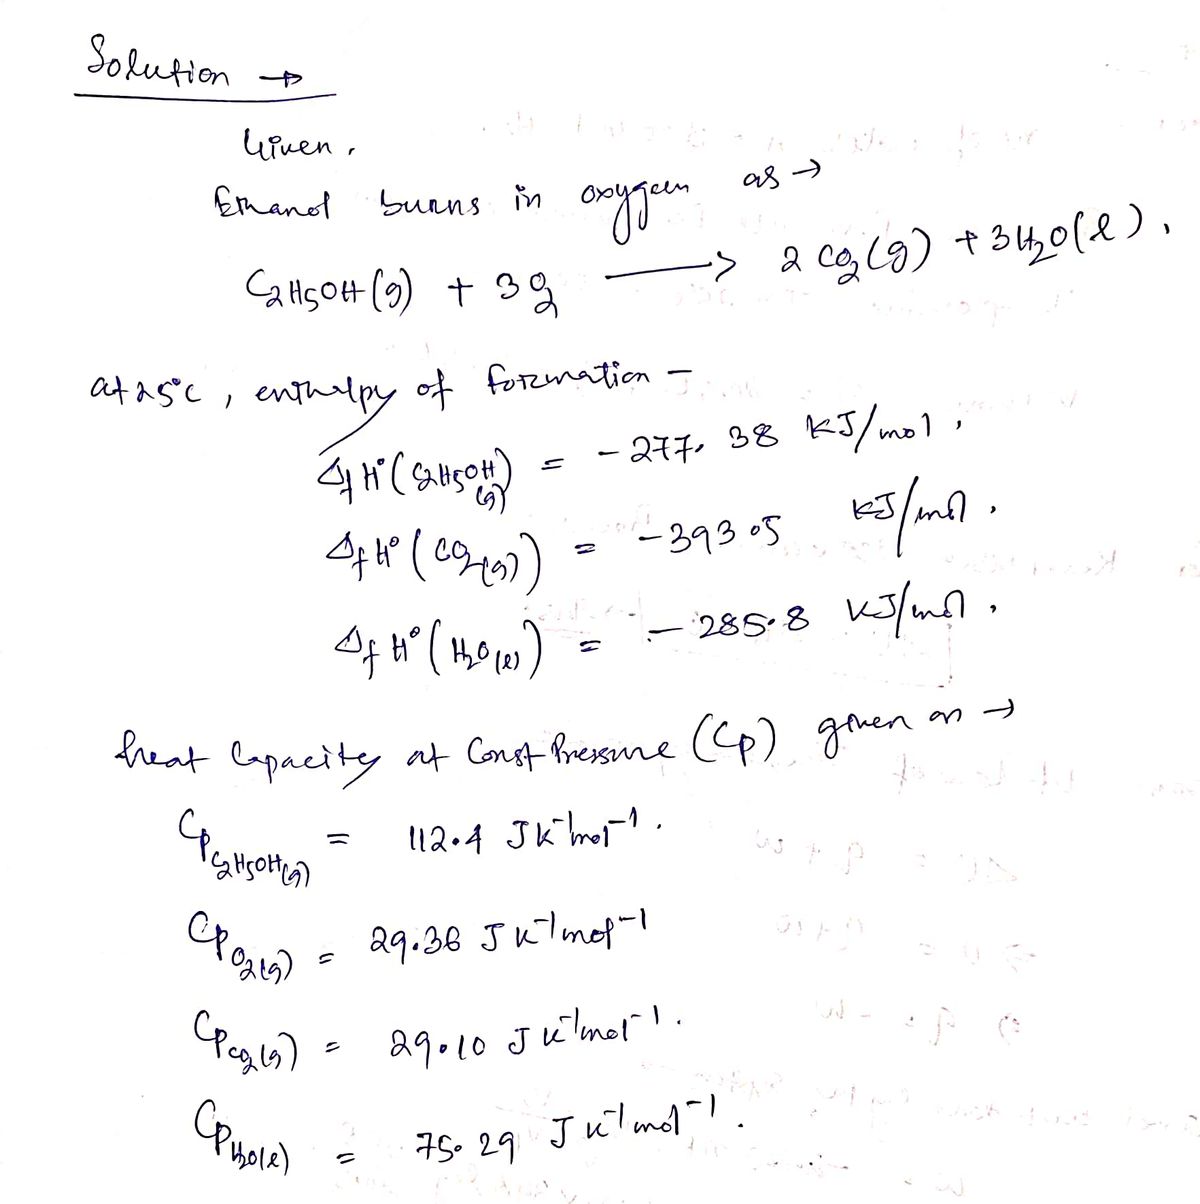 Solution →
Given,
Ethanol burns in oxygeen as →
C2H5OH(g) + 3O2 ⟶ 2CO2(g) + 3H2O(l),
at 25°C, enthalpy of formation –
ΔfH°(C2H5OH(g)) = -277.38 KJ/mol,
ΔfH°(CO2(g)) = -393.05 KJ/mol,
ΔfH°(H2O(l)) = -285.8 KJ/mol,
heat Capacity at Const Pressure (Cp) given as →
CpC2H5OH(g) = 112.4 JK⁻¹mol⁻¹.
CpO2(g) = 29.36 JK⁻¹mol⁻¹
CpCO2(g) = 29.10 JK⁻¹mol⁻¹.
CpH2O(l) = 75.29 JK⁻¹mol⁻¹.